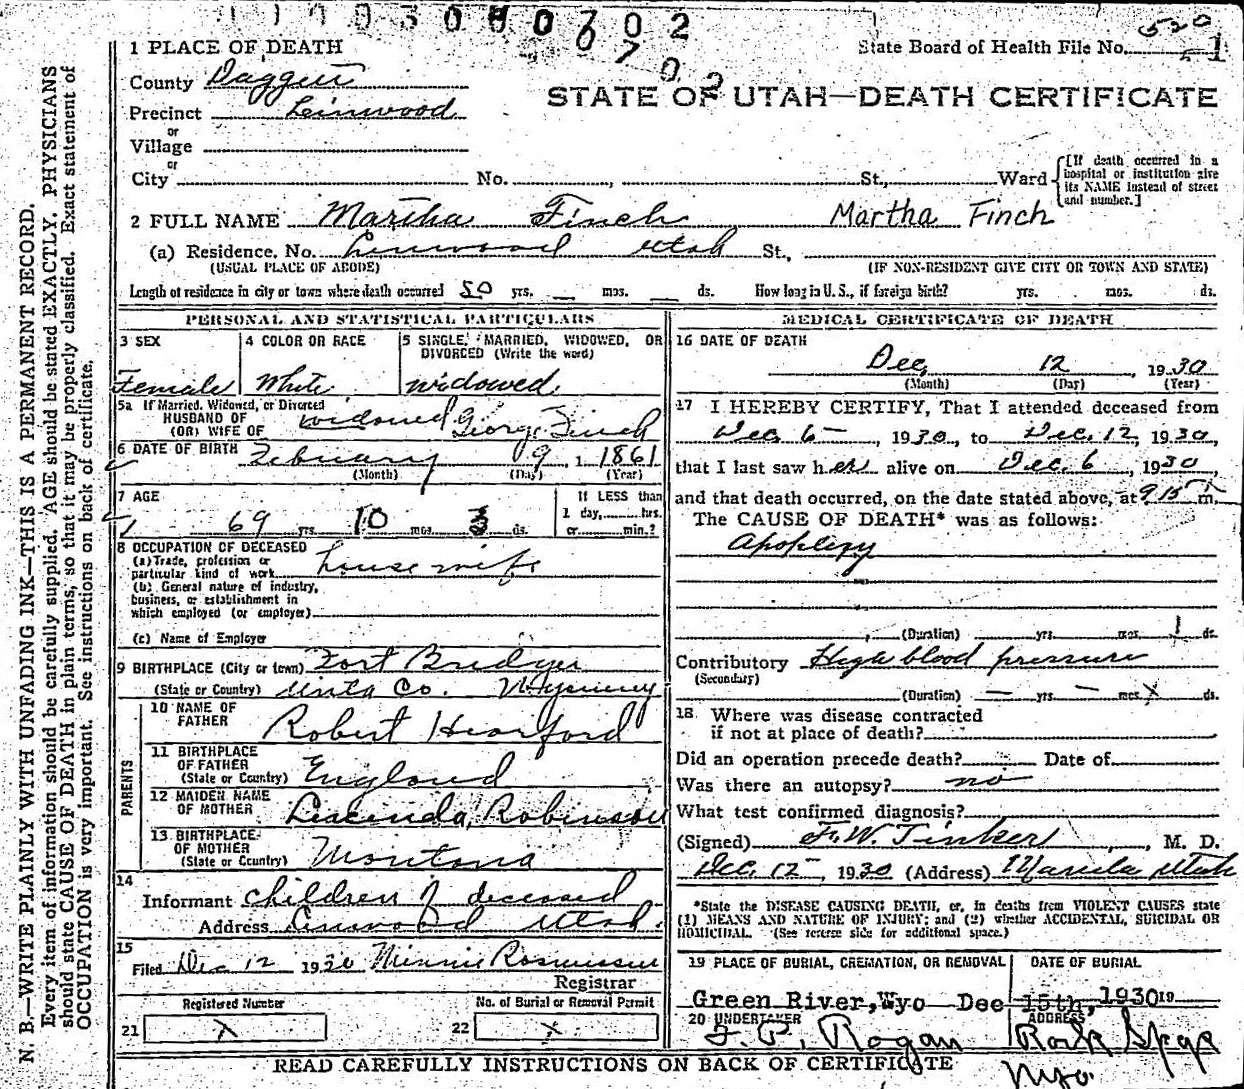 520
1 PLACE OF DEATH
State Board of Health File No. 1
County Daggett
STATE OF UTAH—DEATH CERTIFICATE
Precinct Linwood
or
Village
or
City No. , St., Ward
[If death occurred in a hospital or institution give its NAME instead of street and number.]
2 FULL NAME Martha Finch Martha Finch
(a) Residence. No. Linwood Utah St.,
(USUAL PLACE OF ABODE) (IF NON-RESIDENT GIVE CITY OR TOWN AND STATE)
Length of residence in city or town where death occurred 50 yrs. — mos. — ds. How long in U. S., if foreign birth? yrs. mos. ds.
PERSONAL AND STATISTICAL PARTICULARS
3 SEX 4 COLOR OR RACE 5 SINGLE, MARRIED, WIDOWED, OR DIVORCED (Write the word)
Female White widowed
5a If Married, Widowed, or Divorced
HUSBAND OF
(OR) WIFE OF widowed George Finch
6 DATE OF BIRTH February 9, 1861
(Month) (Day) (Year)
7 AGE If LESS than
1 day, hrs.
69 yrs. 10 mos. 3 ds. or min.?
8 OCCUPATION OF DECEASED
(a) Trade, profession or
particular kind of work house wife
(b) General nature of industry,
business, or establishment in
which employed (or employer)
(c) Name of Employer
9 BIRTHPLACE (City or town) Fort Bridger
(State or Country) Uinta Co. Wyoming
PARENTS
10 NAME OF
FATHER Robert Hearford
11 BIRTHPLACE
OF FATHER
(State or Country) England
12 MAIDEN NAME
OF MOTHER Robinson
13 BIRTHPLACE
OF MOTHER
(State or Country) Montana
14
Informant children of deceased
Address Linwood Utah.
15
Filed Dec 12 1930 Minnie Rasmussen
Registrar
Registered Number No. of Burial or Removal Permit
21 X 22 X
MEDICAL CERTIFICATE OF DEATH
16 DATE OF DEATH
Dec, 12, 1930
(Month) (Day) (Year)
17 I HEREBY CERTIFY, That I attended deceased from
Dec. 6, 1930, to Dec. 12, 1930,
that I last saw her alive on Dec. 6, 1930
and that death occurred, on the date stated above, at 9 15 m.
The CAUSE OF DEATH* was as follows:
Apoplexy
(Duration) yrs. mos. 1 ds.
Contributory High blood pressure
(Secondary)
(Duration) — yrs. — mos. x ds.
18 Where was disease contracted
if not at place of death?
Did an operation precede death? Date of
Was there an autopsy? no
What test confirmed diagnosis?
(Signed) F. W. Tinker, M. D.
Dec. 12, 1930 (Address) Manila Utah
*State the DISEASE CAUSING DEATH, or, in deaths from VIOLENT CAUSES state
(1) MEANS AND NATURE OF INJURY; and (2) whether ACCIDENTAL, SUICIDAL OR
HOMICIDAL. (See reverse side for additional space.)
19 PLACE OF BURIAL, CREMATION, OR REMOVAL DATE OF BURIAL
Green River, Wyo Dec 15th, 1930 19
20 UNDERTAKER ADDRESS
F. P. Rogan Rock Spgs
Wyo.
READ CAREFULLY INSTRUCTIONS ON BACK OF CERTIFICATE
N. B.—WRITE PLAINLY WITH UNFADING INK—THIS IS A PERMANENT RECORD.
Every item of information should be carefully supplied. AGE should be stated EXACTLY. PHYSICIANS
should state CAUSE OF DEATH in plain terms, so that it may be properly classified. Exact statement of
OCCUPATION is very important. See instructions on back of certificate.